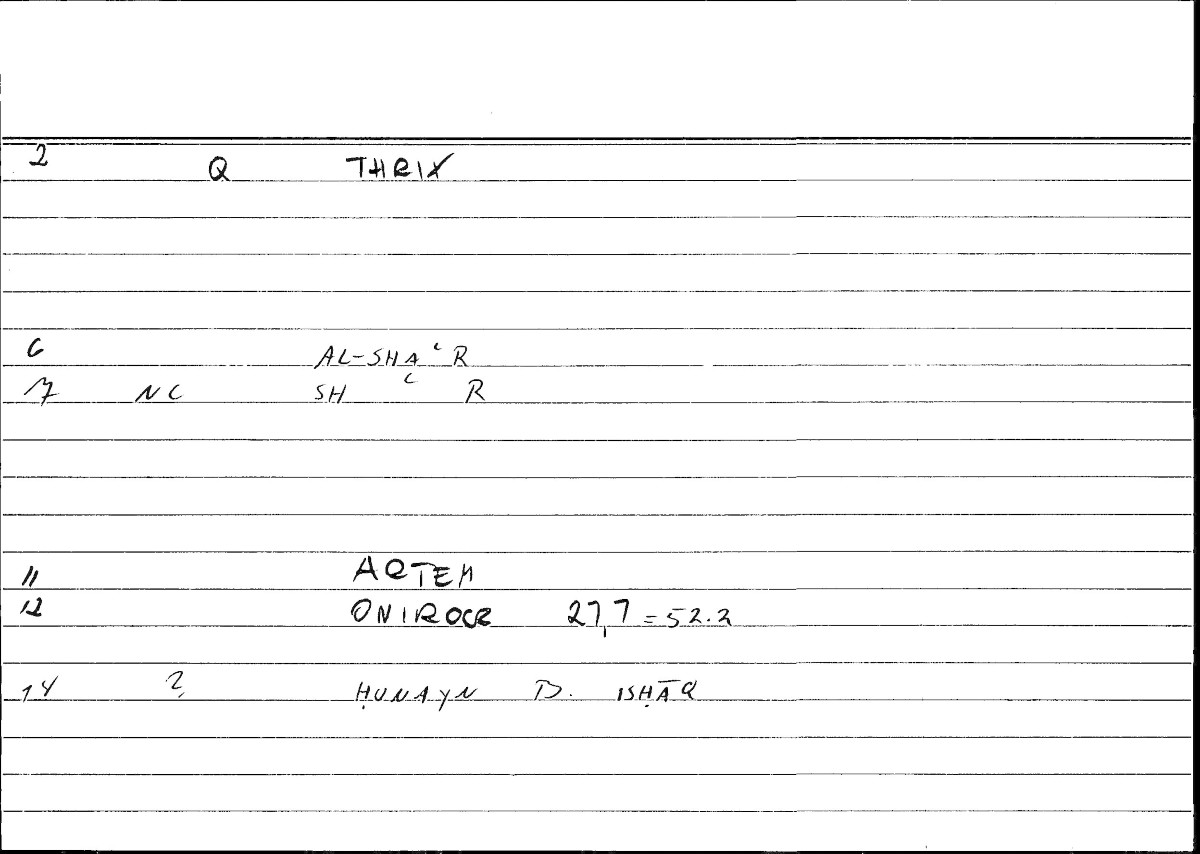 2 Q THRIX
6 AL-SHAʿR
7 NC SH ʿ R
11 ARTEM
12 ONIROCR 27,7 = 52.2
14 2 ḤUNAYN B. ISḤĀQ